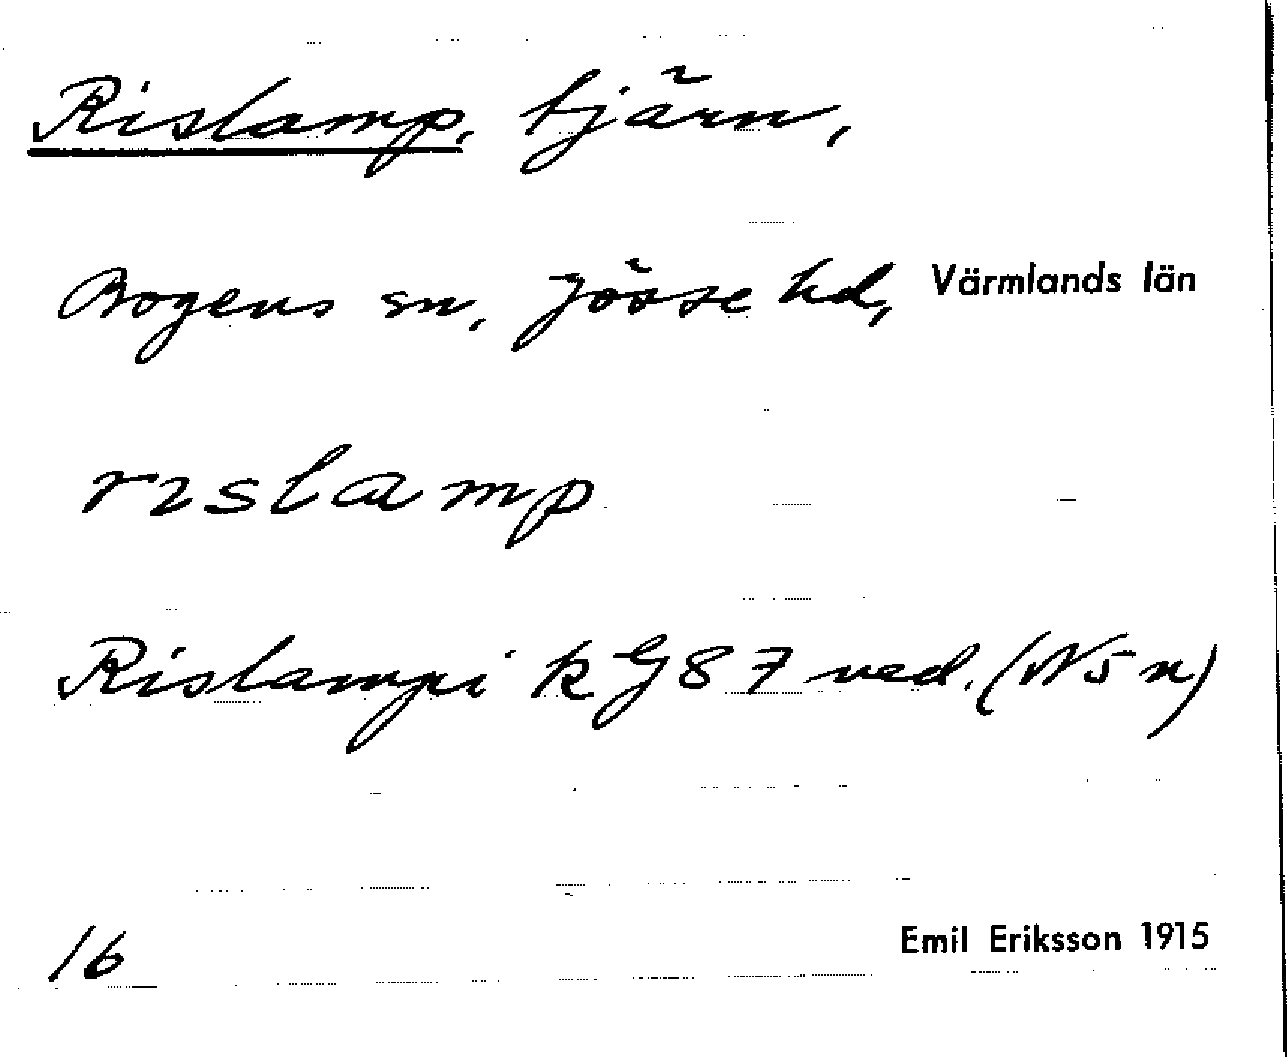 Rislamp, tjärn,
Bogens sn, Jösse hd, Värmlands län
rislamp
Rislampi k G 87 ved. (N5n)
16
Emil Eriksson 1915